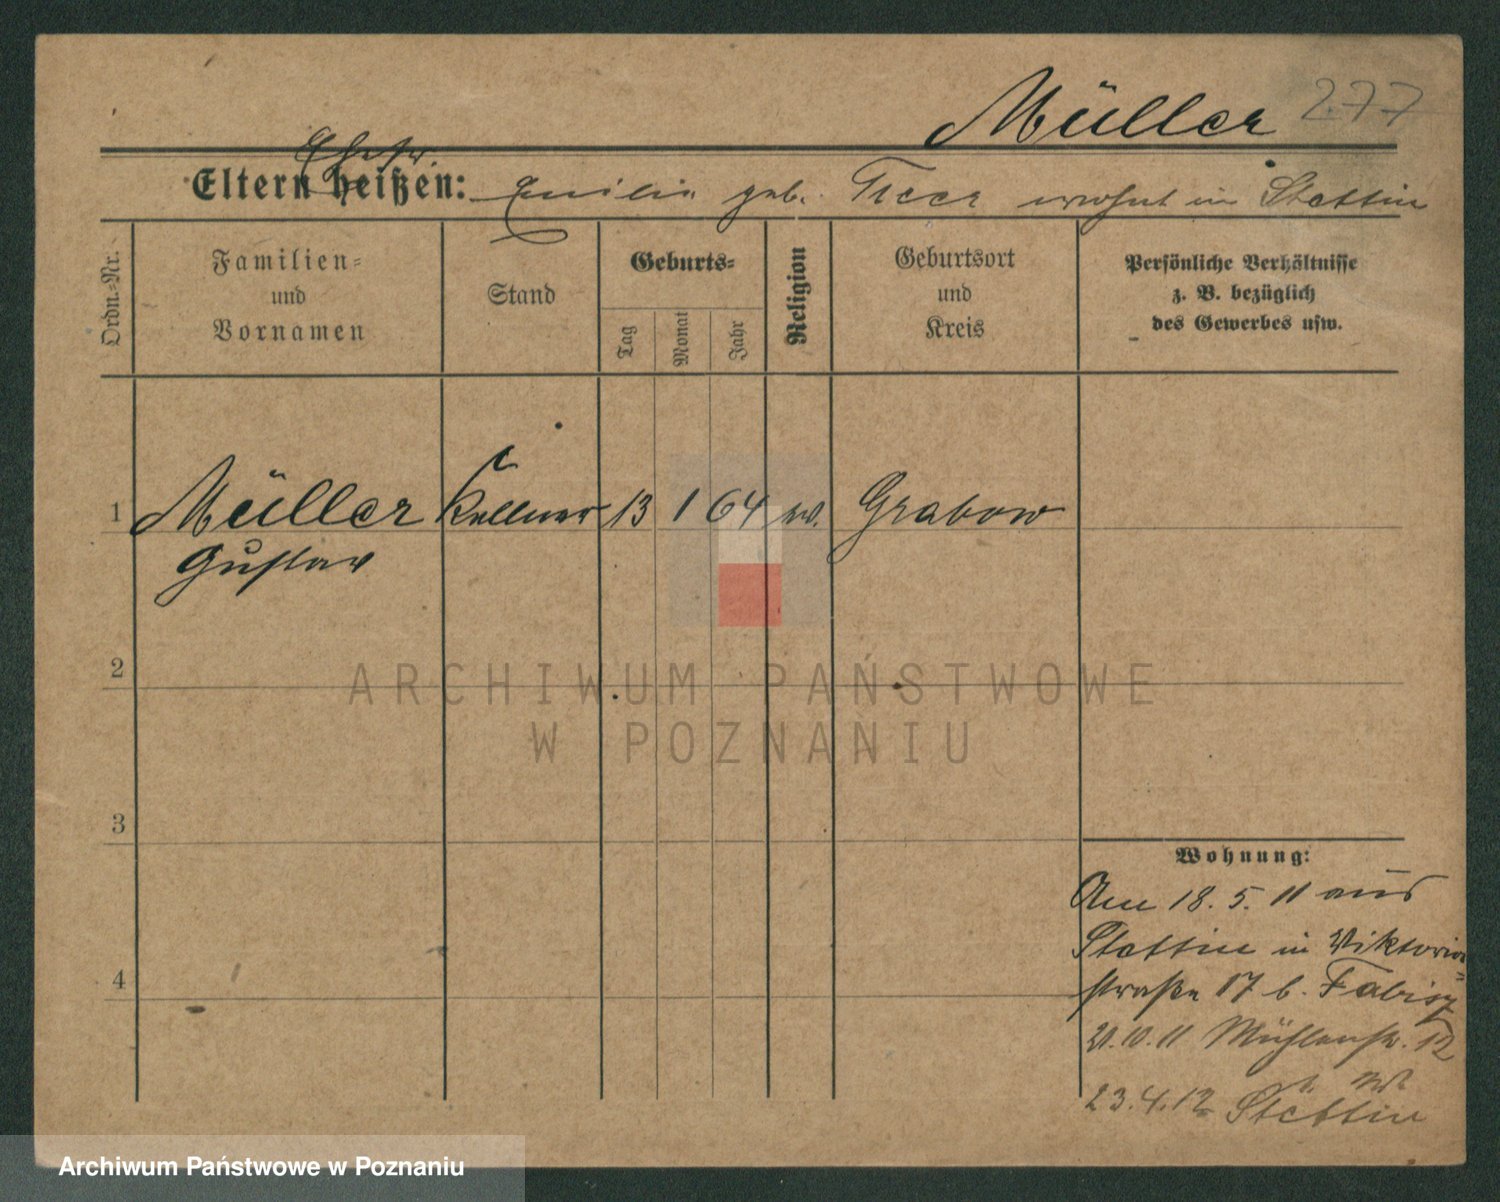 Müller 277
Ehefr.
Eltern heißen: Emilie geb. Treer wohnt in Stettin
Ordn.-Nr.
Familien-
und
Vornamen
Stand
Geburts-
Tag
Monat
Jahr
Religion
Geburtsort
und
Kreis
Persönliche Verhältnisse
z. B. bezüglich
des Gewerbes usw.
1 Müller Kellner 13 1 64 ev. Grabow
Gustav
2
3
4
Wohnung:
Am 18. 5. 11 aus
Stettin in Viktoria-
straße 17 b. Fabisz
21.10.11 Mühlenstr. 12
23.4.12 Stettin
ARCHIWUM PAŃSTWOWE
W POZNANIU
Archiwum Państwowe w Poznaniu